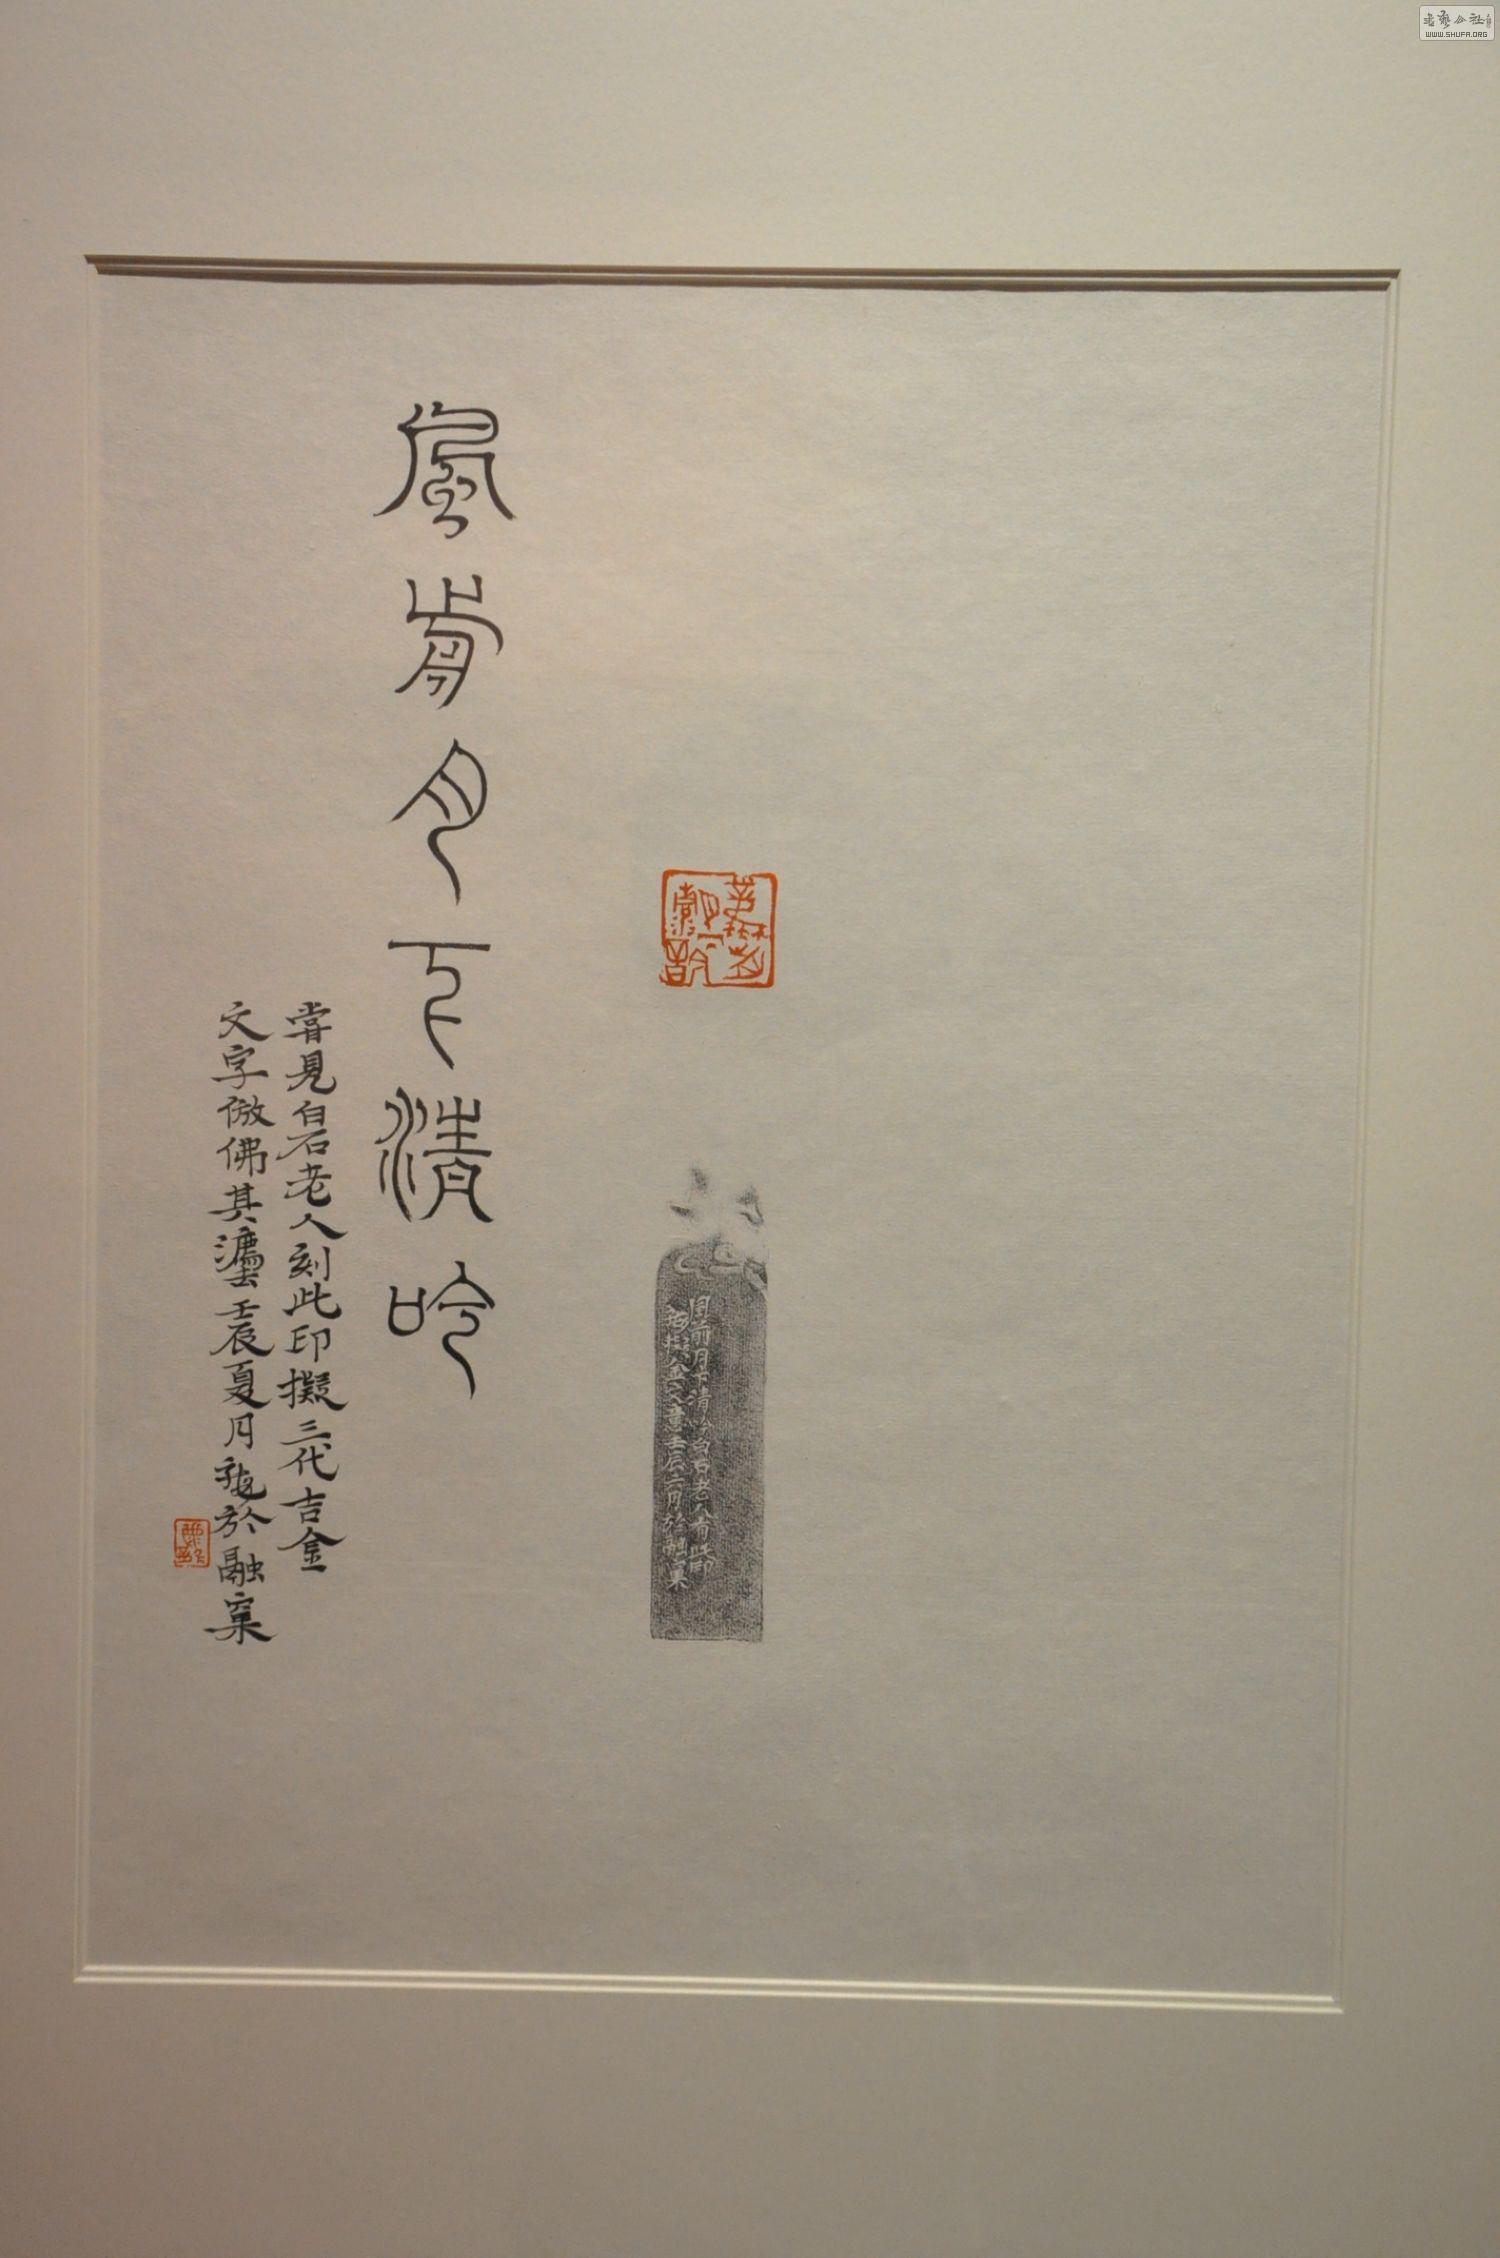 書藝公社
WWW.SHUFA.ORG
風前月下清吟白石老人有此印
擬金文意壬辰月於融窠
風前月下清吟
嘗見白石老人刻此印擬三代吉金
文字倣佛其灋壬辰夏月於融窠